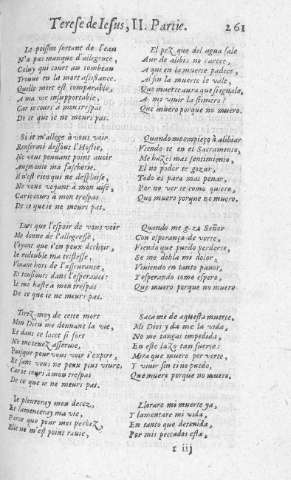 Terese de Iesus, II. Partie. 261
Le poisson sortant de l'eau
N'a pas manque d'allegence,
Celuy qui court au tombeau
Trouve en la mort assistance.
Quelle mort est comparable,
A ma vie insupportable,
Car ie cours à mon trespas
De ce que ie ne meurs pas.
Si ie m'allege à vous voir
Renfermé dessous l'Hostie,
Ne vous pouuant point auoir
Augmente ma fascherie.
Il n'est rien qui ne desplaise,
Ne vous voyant à mon aise,
Car ie cours à mon trespas
De ce que ie ne meurs pas.
Lors que l'espoir de vous voir
Me donne de l'allegresse,
Voyant que i'en peux dechoir,
Ie redouble ma tristesse,
Viuant hors de l'asseurance,
Et tousiours dans l'esperance
Ie me haste à mon trespas
De ce que ie ne meurs pas.
Tirez moy de cette mort
Mon Dieu me donnant la vie,
Et dans ce lacet si fort
Ne me tenez asseruie,
Puisque pour vous voir i'expire,
Et sans vous ne peux plus viure,
Car ie cours à mon trespas
De ce que ie ne meurs pas.
Ie pleureray mon decez,
Et lamenteray ma vie,
Parce que pour mes pechez
Elle ne m'est point rauie,
El pez que del agua sale
Aun de alibio no carece,
A quien la muerte padece,
Al fin la muerte le vale,
Que muerte aura que se iguale,
A mi viuir lastimero?
Que muero porque no muero.
Quando me empieço à alibiar
Viendo te en el Sacramento,
Me haze mas sentimiento,
El no poder te gozar,
Todo es para mas penar,
Por no ver te como quiero,
Que muero porque no muero.
Quando me goza Señor
Con esperança de verte,
Viendo que puedo perderte,
Se me dobla mi dolor,
Viuiendo en tanto pauor,
Y esperando como espero,
Que muero porque no muero.
Saca me de aquesta muerte,
Mi Dios y da me la vida,
No me tangas impedida,
En este lazo tan fuerte:
Mira que muero por verte,
Y viuir sin ti no puedo,
Que muero porque no muero.
Llorare mi muerte ya,
Y lamentare mi vida,
En tanto que detenida,
Por mis peccados esta,
iij